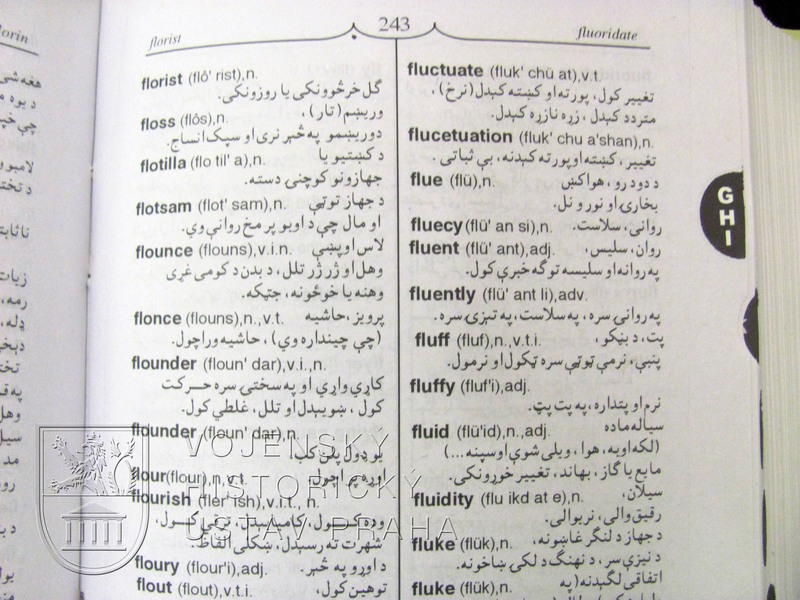 florin
florist
243
fluoridate
florist (flô' rist),n.
ګل خرڅوونکی یا روزونکی.
floss (flôs),n.
وریښم (تار)،
دوریښمو په څېر نری او سپک انساج.
flotilla (flo til' a),n.
د کښتیو یا
جهازونو کوچنی دسته.
flotsam (flot' sam),n.
د جهاز ټوټې
او مال چې د اوبو پر مخ روانې وي.
flounce (flouns),v.i.n.
لاس او پښې
وهل او ژر ژر تلل، د بدن د کومې غړی
وهنه یا خوځونه، جټکه.
flonce (flouns),n.,v.t.
پرویز، حاشیه
(چې چینداره وي)، حاشیه ورا چول.
flounder (floun' dar),v.i.,n.
کاږې واږې او په سختۍ سره حرکت
کول، ښویېدل او تلل، غلطي کول.
flounder (floun' dar),n.
یو ډول پلن کب.
flour(flour),n.,v.t.
اوړه، پر اچول.
flourish (fler' ish),v.i.t., n.
وده کول، کامیابېدل، ترقي کول،
شهرت ته رسېدل، ښکلي الفاظ.
floury (flour'i),adj.
د اوړو په څېر.
flout (flout),v.t.i.
توهین کول،
fluctuate (fluk' chü at),v.t.
تغییر کول، پورته او کښته کېدل (نرخ)،
متردد کېدل، زړه نازړه کېدل.
flucetuation (fluk' chu a'shan),n.
تغییر، کښته او پورته کېدنه، بې ثباتي.
flue (flü),n.
د دود رو، هوا کښ
بخارۍ او نور و نل.
fluecy (flü' an si),n.
رواني، سلاست.
fluent (flü' ant),adj.
روان، سلیس،
په روانه او سلیسه توګه خبرې کول.
fluently (flü' ant li),adv.
په روانۍ سره، په سلاست، په تېزۍ سره.
fluff (fluf),n.,v.t.i.
پت، د بڼکو،
پنبې، نرمې ټوټې سره ټکول او نرمول.
fluffy (fluf'i),adj.
نرم او پتداره، په پت پټ.
fluid (flü'id),n.,adj.
سیاله ماده
(لکه اوبه، هوا، ویلې شوې اوسپنه...)
مایع یا ګاز، بهاند، تغییر خوړونکی.
fluidity (flu ikd at e),n.
سیلان،
رقیق والی، نریوالی.
fluke (flük),n.
د جهاز د لنګر غاښونه،
د نیزې سر، د نهنګ د لکۍ ښاخونه.
fluke (flük),n.
اتفاقي لګېدنه (په
G
H
I
VOJENSKÝ
HISTORICKÝ
ÚSTAV PRAHA